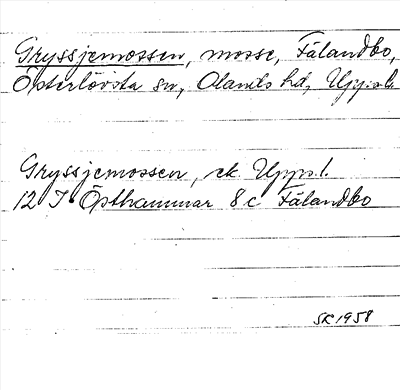 Gryssjemossen, mosse, Fälandbo,
Österlövsta sn, Olands hd, Upps.l.
Gryssjemossen, ek. Upps.l.
12 I Östhammar 8c Fälandbo
SK 1958